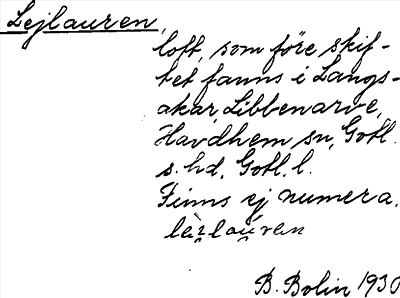 Lejlauren,
loft, som före skif-
tet fanns i Langs-
akar, Libbenarve,
Havdhem sn, Gotl.
s. hd, Gotl. l.
Finns ej numera.
B. Bolin 1930